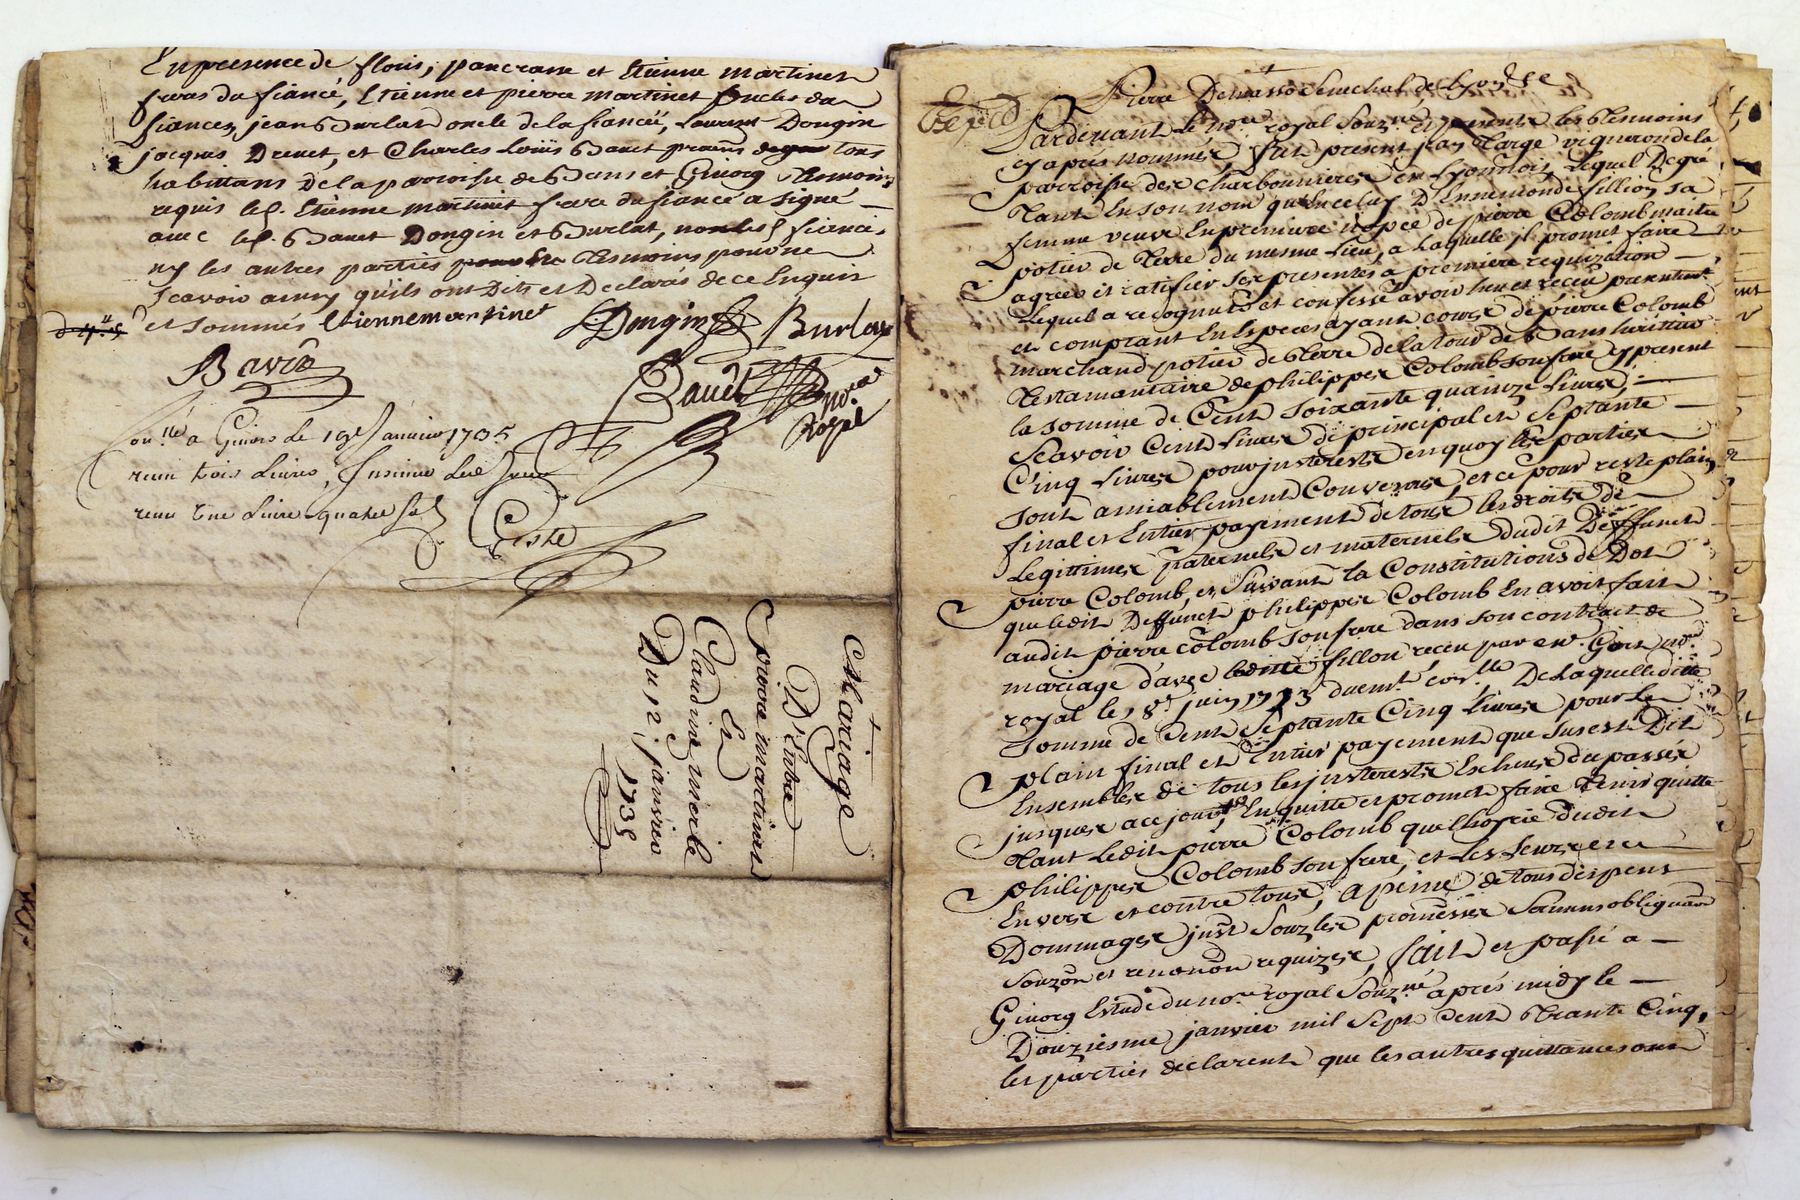 En presence de floris, pancrasse et Etienne martinet
freres du fiancé, Etienne et pierre martinet oncles du
fiancez, jean Burlat oncle de la fiancée, Laurent Dongin
jacques Drevet, et Charles Loüis Bauet tous
habittans de la parroisse de Bans et Givorg tesmoins
requis led. Etienne martinet frere du fiancé a signé
avec led. Bauet Dongin et Burlat, non les fiancés
ny les autres parties tesmoins pour ne
scavoir ainsy quils ont dits et Declarés de ce Enquis
et sommés Etienne martinet Dongin Burlat
Bavid
Bauet no.re Royal
con.llé a Givors le 19e Janvier 1735
receu trois Livres, Insinué led Jour
receu Une Livre quatre sols
Coste
Mariage
D'Entre
pierre martinet
Et
Claudine merle
Du 12. janvier
1735
Pierre Demasso Senechal de Lyon
Expéd
Pardevant le no.re royal Souz.né et presents les tesmoins
cy apres nommés, fut present jean Large vigneron de la
parroisse des Charbonnieres en Lyonnois, lequel De gré
tant En son nom qu'en celuy D'Ennemonde fillion sa
femme veuve En premiere nopce de pierre Colomb maitre
potier de terre du mesme lieu, a laquelle jl promet faire
agreer et ratifier ses presentes, a premiere requizition
Lequel a recognuts et confessé avoir heu et receu presentement
et comptant En Especes ayant cours de pierre Colomb
marchand potier de terre de la tour de Bans heritier
testamentaire de philippes Colomb son frere cy present
la somme de Cent soixante quainze livres;
Scavoir Cent livres de principal et Septante
Cinq livres pour jnterests en quoy les parties
sont amiablement Convenus, et ce pour reste plain,
final et Entier payement de tous les droits de
Legittimes paternels et maternels dudit Deffunct
pierre Colomb, et suivant la Constitutions de Dot
que ledit Deffunct philippes Colomb En avoit fait
audit pierre Colomb son frere dans son contract de
mariage d'avec laditte fillon receu par me. Girt no.re
royal le 8e juin 1723 duemt. con.llé De laquelle ditte
somme de Cent Septante Cinq livres pour le
plain final et Entier payement que sus est Dit
Ensembles de tous les jnterests Escheus du passés
jusques a ce jourd, En quitte et promet faire tenir quitte
tant ledit pierre Colomb que lhoyrie dudit
philippes Colomb son frere, et les leurs et ce
Envers et contre tous, a peine de tous despens
Dommages jnst Souz les promesses Serments obligaon
souzon et renonon requizes, fait et passé a
Givorg Estude du no.re royal Souz.né après midy le
Douziesme janvier mil Sept Cent trante Cinq,
les parties declarent que les autres quittances